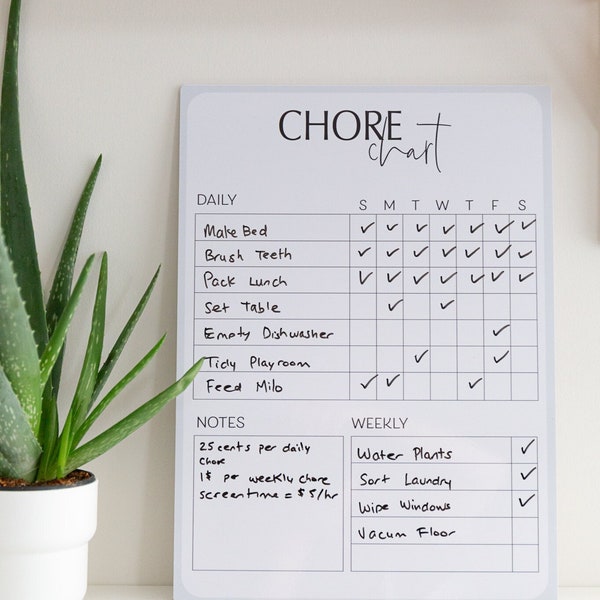 CHORE
chart
DAILY S M T W T F S
Make Bed ✓ ✓ ✓ ✓ ✓ ✓ ✓
Brush Teeth ✓ ✓ ✓ ✓ ✓ ✓ ✓
Pack Lunch ✓ ✓ ✓ ✓ ✓ ✓ ✓
Set Table ✓ ✓
Empty Dishwasher ✓
Tidy Playroom ✓ ✓
Feed Milo ✓ ✓ ✓
NOTES
25 cents per daily
chore
1$ per weekly chore
screentime = $5/hr
WEEKLY
Water Plants ✓
Sort Laundry ✓
Wipe Windows ✓
Vacum Floor